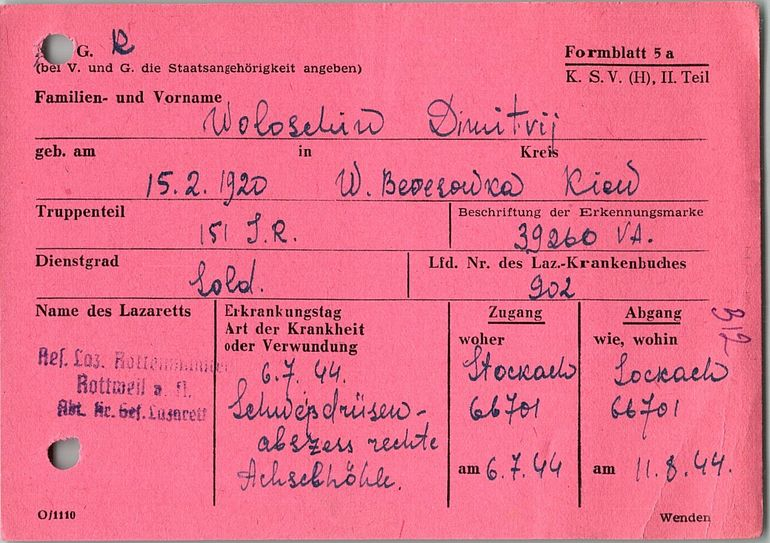 G. R
(bei V. und G. die Staatsangehörigkeit angeben)
Formblatt 5 a
K. S. V. (H), II. Teil
Familien- und Vorname
Woloschin Dimitrij
geb. am in Kreis
15.2.1920 W. Beresowka Kiew
Truppenteil
151 I.R.
Beschriftung der Erkennungsmarke
39260 VA.
Dienstgrad
Sold.
Lfd. Nr. des Laz.-Krankenbuches
902
Name des Lazaretts
Res. Laz. Rottenmünster
Rottweil a. N.
Abt. Kr. Gef. Lazarett
Erkrankungstag
Art der Krankheit
oder Verwundung
6.7.44.
Schweißdrüsen-
abszess rechte
Achselhöhle.
Zugang
woher
Stockach
66701
am 6.7.44
Abgang
wie, wohin
Sockach
66701
am 11.8.44.
312
O/1110
Wenden